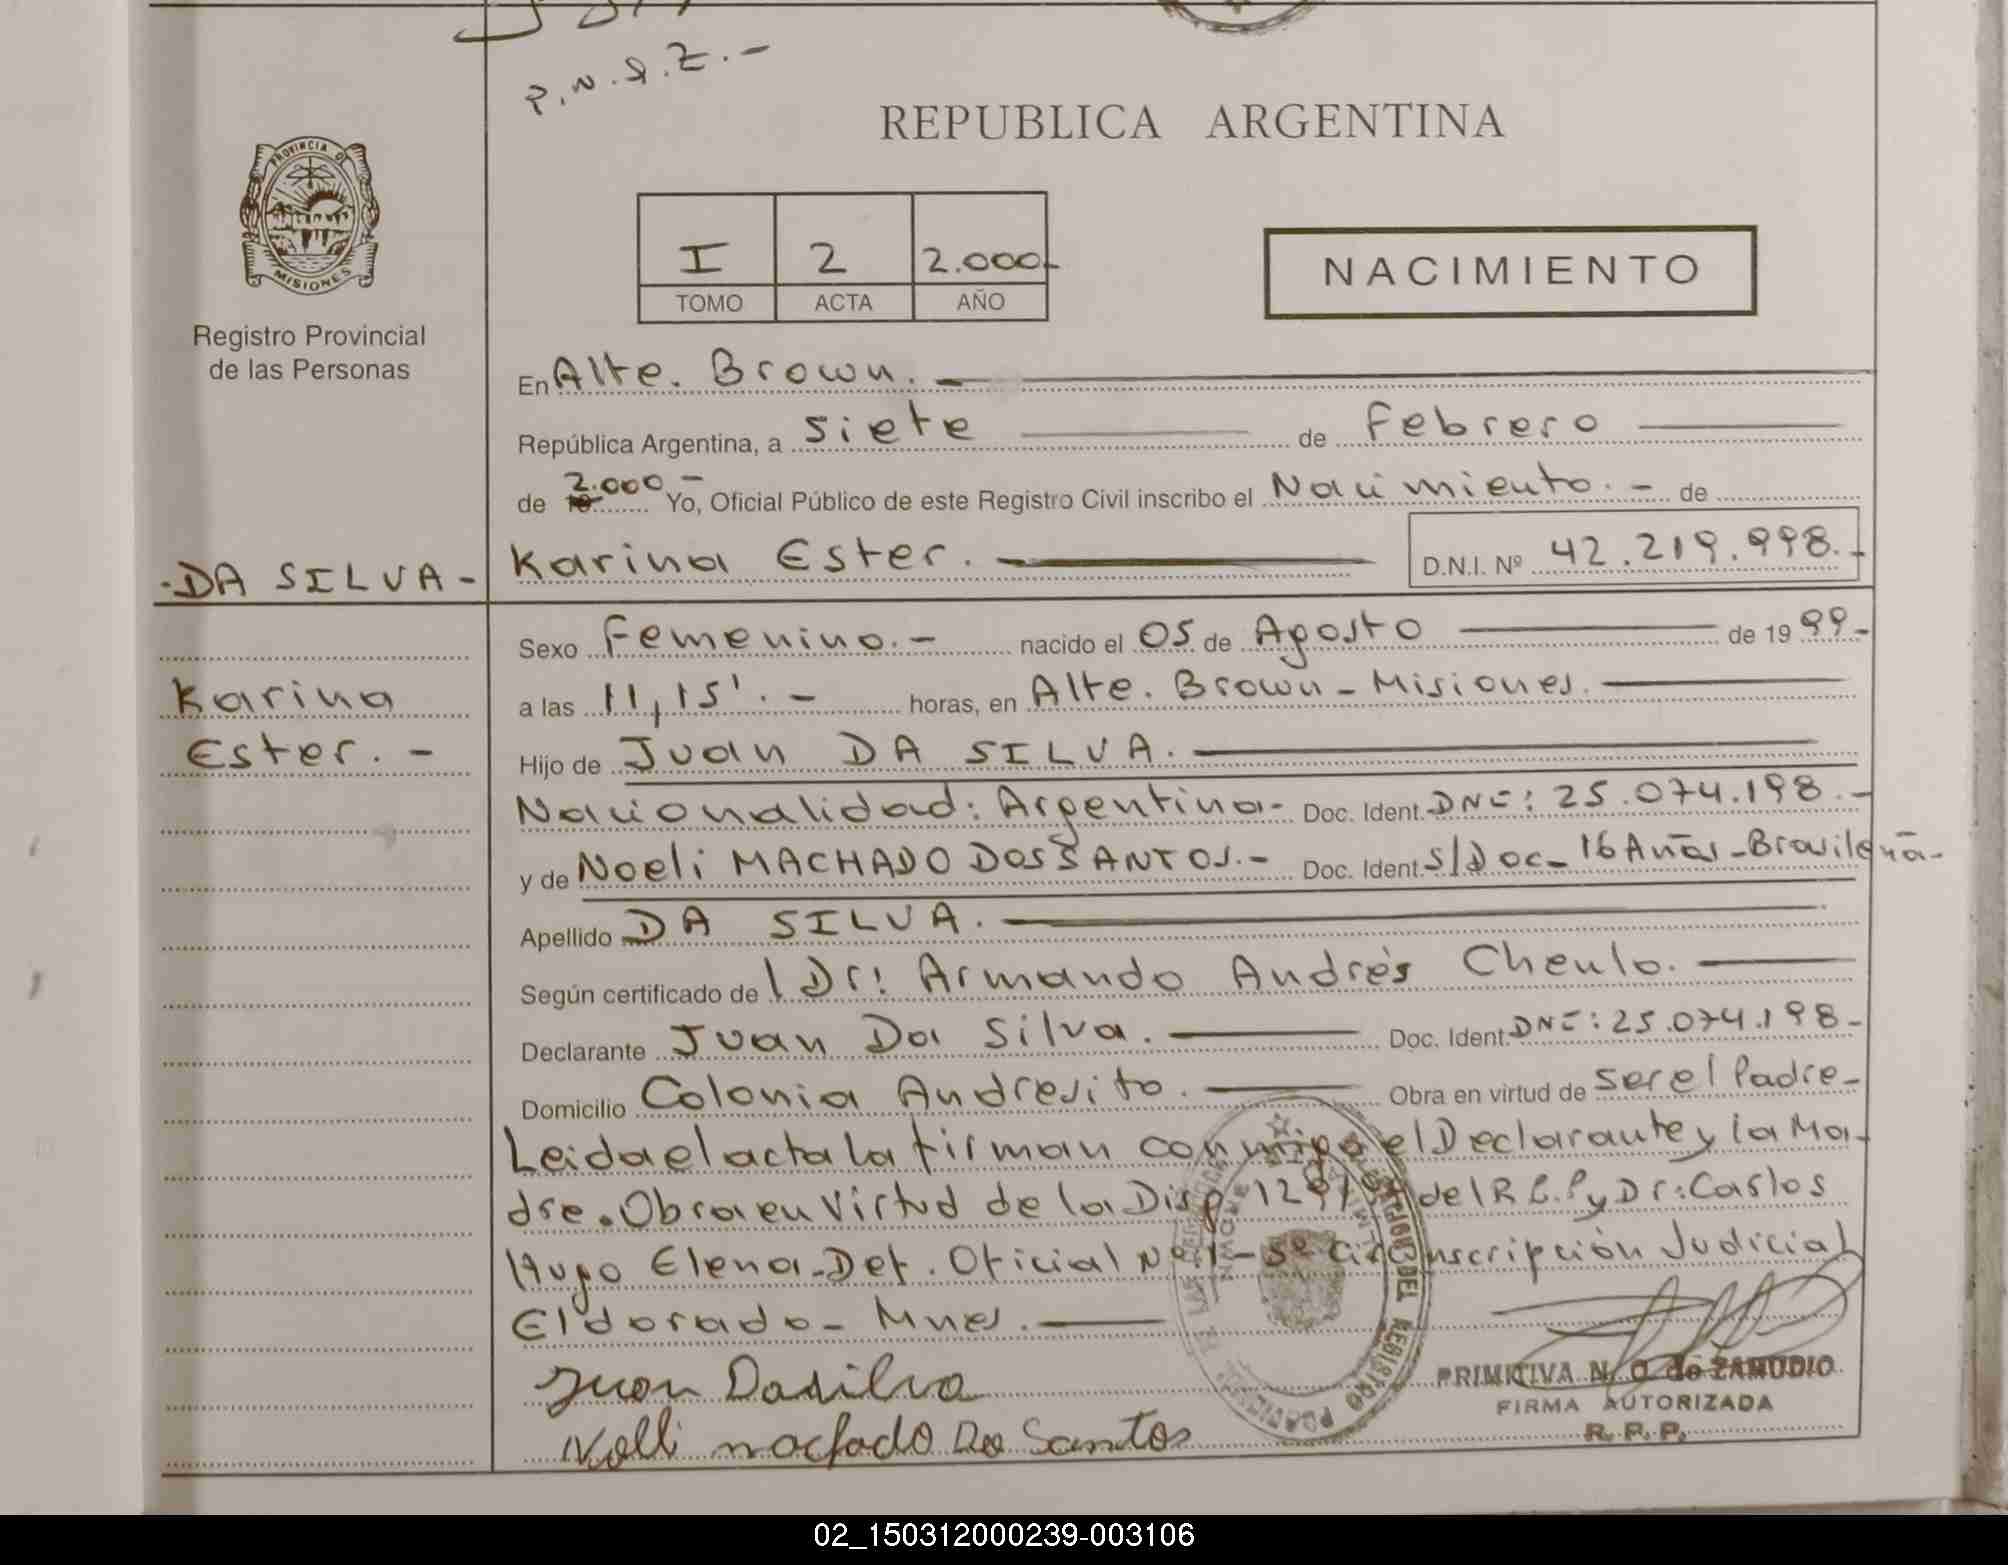 P.N.d.Z.-
PROVINCIA DE
MISIONES
Registro Provincial
de las Personas
REPUBLICA ARGENTINA
I 2 2.000-
TOMO ACTA AÑO
NACIMIENTO
En Alte. Brown.-
República Argentina, a siete de Febrero
de 2.000- Yo, Oficial Público de este Registro Civil inscribo el Nacimiento.- de
-DA SILVA- Karina Ester. D.N.I. Nº 42.219.998.-
Sexo Femenino.- nacido el 05 de Agosto de 1999-
Karina
Ester.-
a las 11,15'.- horas, en Alte. Brown-Misiones.
Hijo de Juan DA SILVA.
Nacionalidad: Argentina- Doc. Ident. DNI: 25.074.198.-
y de Noeli MACHADO DOS SANTOS.- Doc. Ident. S/Doc- 16 Años-Brasileña-
Apellido DA SILVA.
Según certificado de l Dr: Armando Andrés Chenlo.
Declarante Juan Da Silva. Doc. Ident. DNI: 25.074.198-
Domicilio Colonia Andresito. Obra en virtud de ser el Padre-
Leida el acta la firman conmigo el Declarante y la Ma-
dre. Obra en Virtud de la Disp del R.P.P y Dr: Carlos
Hugo Elena-Def. Oficial Nº 1-5º Circunscripción Judicial
Eldorado- Mnes.
Juan Dasilva
Noeli machado Do Santos
PRIMITIVA N. O. de ZAMUDIO
FIRMA AUTORIZADA
R. P. P.
02_150312000239-003106